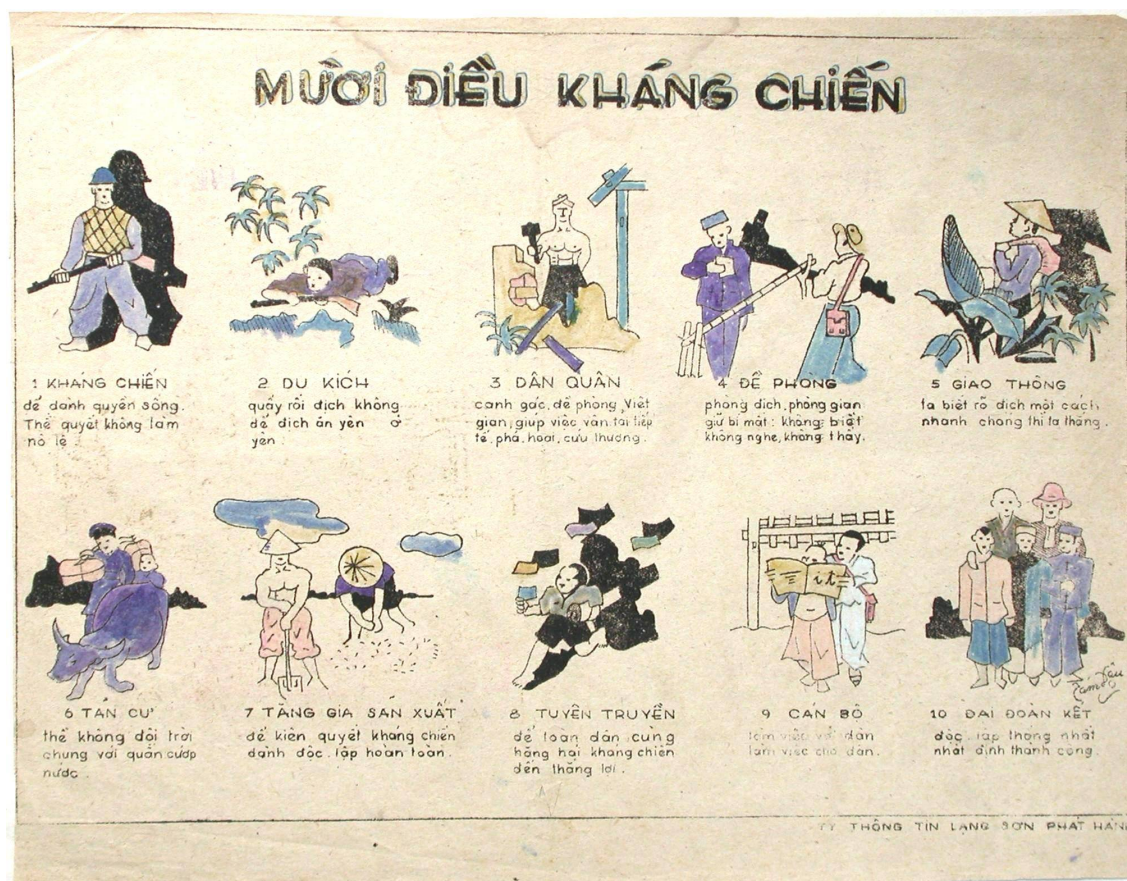 MƯỜI ĐIỀU KHÁNG CHIẾN
1 KHÁNG CHIẾN
để dành quyền sống.
Thề quyết không làm
nô lệ.
2 DU KÍCH
quấy rối địch không
để địch ăn yên ở
yên
3 DÂN QUÂN
canh gác, đề phòng Việt
gian, giúp việc vận tải tiếp
tế, phá hoại, cứu thương.
4 ĐỀ PHÒNG
phòng địch, phòng gian
giữ bí mật: không biết
không nghe, không thấy.
5 GIAO THÔNG
ta biết rõ địch một cách
nhanh chóng thì ta thắng.
6 TẢN CƯ
thề không đội trời
chung với quân cướp
nước.
7 TĂNG GIA SẢN XUẤT
để kiên quyết kháng chiến
dành độc lập hoàn toàn.
8 TUYÊN TRUYỀN
để toàn dân cùng
hăng hái kháng chiến
đến thắng lợi.
9 CÁN BỘ
làm việc với dân
làm việc cho dân.
10 ĐẠI ĐOÀN KẾT
độc lập thống nhất
nhất định thành công.
TY THÔNG TIN LẠNG SƠN PHÁT HÀN